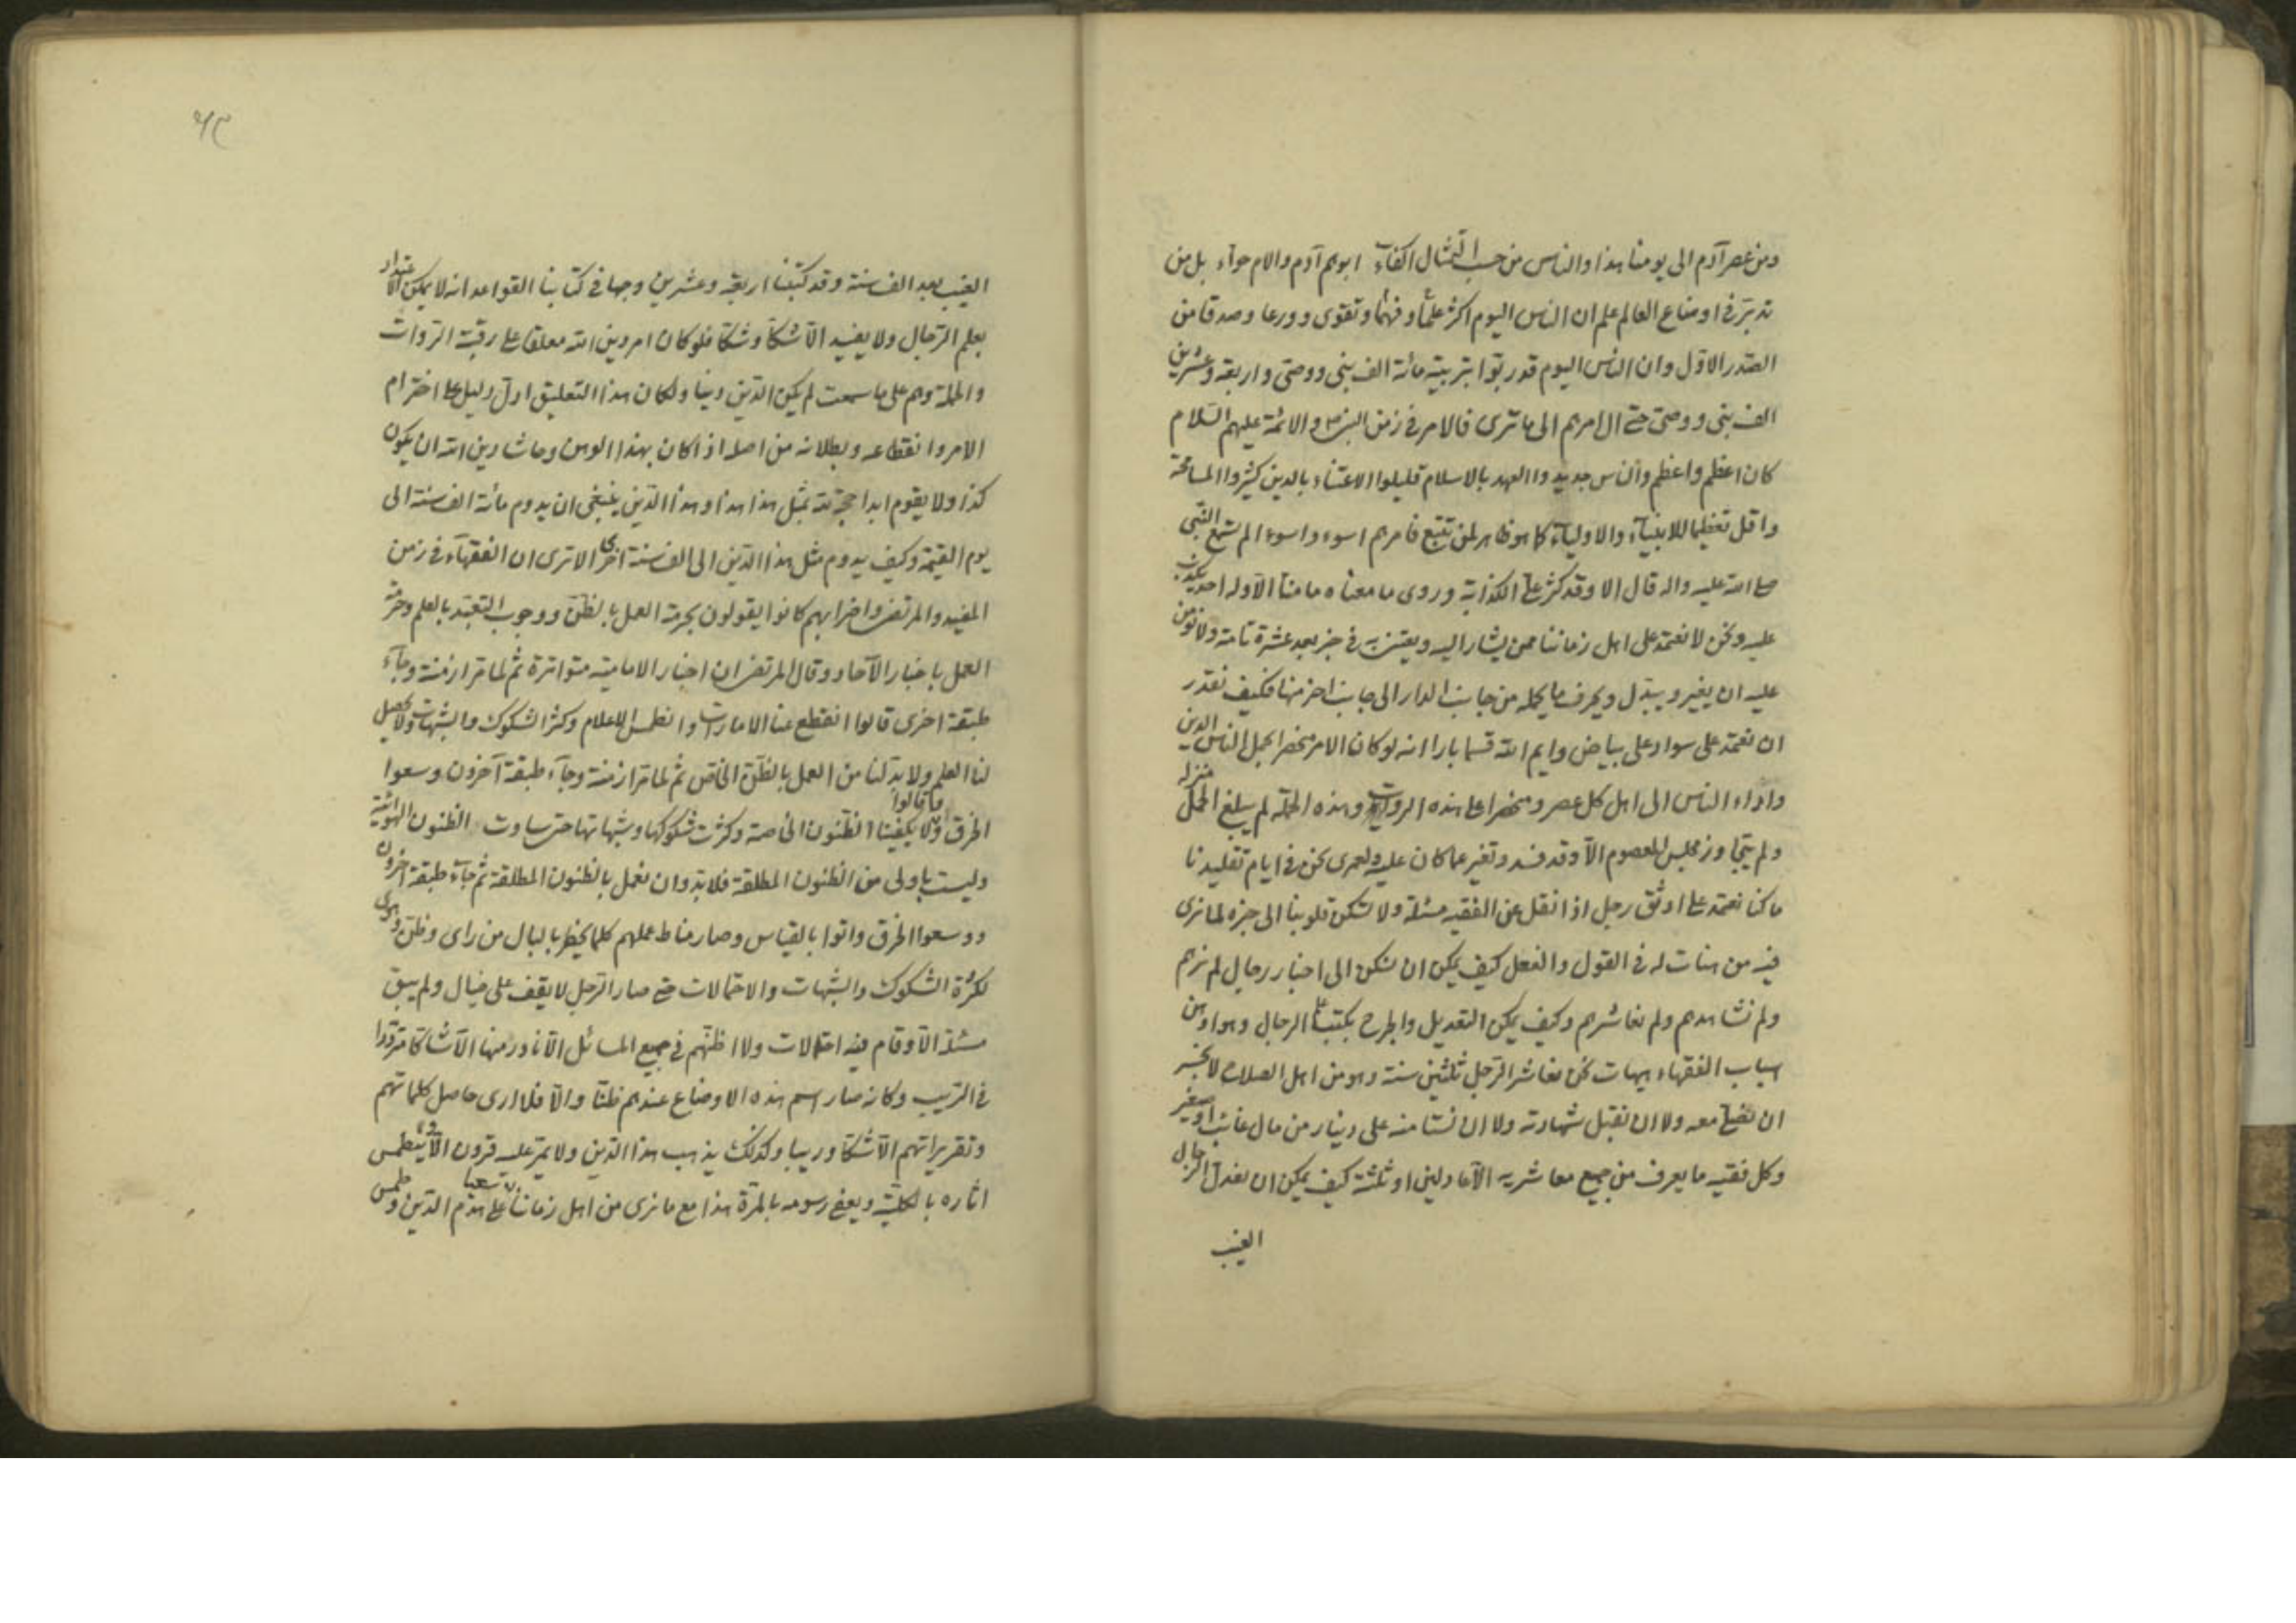 ومن عصر آدم الى يومنا هذا والناس من حيث التمثال اكفاء ابوهم آدم والام حواء بل من
تدبر في اوضاع العالم علم ان الناس اليوم اكثر علماً وفهماً وتقوى وورعا وصدقا من
الصدر الاول وان الناس اليوم قد ربّوا بتربية مائة الف نبي ووصي واربعة وعشرين
الف نبي ووصي حتى آل امرهم الى ما ترى فالامر في زمن النبي ص والائمة عليهم السلام
كان اعظم واعظم والناس جديدوا العهد بالاسلام قليلوا الاعتناء بالدين كثيروا المسامحة
واقل تعظيما للانبياء والاولياء كما هو ظاهر لمن تتبع فامرهم اسوء واسوء الم تسمع النبي
صلى الله عليه واله قال الا وقد كثر علي الكذابة وروى ما معناه ما منا الا وله احد يكذب
عليه ونحن لا نعتمد على اهل زماننا ممن يشار اليه ويعتنى به في خبر بعد عشرة تامة ولا نؤمن
عليه ان يغير ويبدل ويحرف ما يحمله من جانب الدار الى جانب اخر منها فكيف نقدر
ان نعتمد على سواد على بياض وايم الله قسما بارا انه لو كان الامر منحصرا بحمل الناس الدين
واداء الناس الى اهل كل عصر ومنحصرا على هذه الرواة وهذه الحملة لم يبلغ الحمل منزله
ولم يتجاوز مجلس المعصوم الا وقد فسد وتغير عما كان عليه ولعمري نحن في ايام تقليدنا
ما كنا نعتمد على اوثق رجل اذا نقل عن الفقيه مسئلة ولا تسكن قلوبنا الى خبره لما نرى
فيه من هنات له في القول والفعل كيف يمكن ان نسكن الى اخبار رجال لم نرهم
ولم نشاهدهم ولم نعاشرهم وكيف يمكن التعديل والجرح بكتب علم الرجال وهو اوهن
اسباب الفقهاء هيهات نحن نعاشر الرجل ثلثين سنة وهو من اهل الصلاح لا نجسر
ان نصلي معه ولا ان نقبل شهادته ولا ان نستامنه على دينار من مال غائب او صغير
وكل فقيه ما يعرف من جميع معاشريه الا عادلين او ثلثة كيف يمكن ان نعدل الرجال
الغيب
الغيب بعد الف سنة وقد كتبنا اربعة وعشرين وجها في كتابنا القواعد انه لا يمكن الاعتداد
بعلم الرجال ولا يفيد الا شكا وشكا فلو كان امر دين الله معلقا على رقبة الروات
والحملة وهم على ما سمعت لم يكن الدين دينا ولكان هذا التعليق اول دليل على اخترام
الامر وانقطاعه وبطلانه من اصله اذا كان بهذا الوهن وحاشا دين الله ان يكون
كذا ولا يقوم ابدا حجة لله بمثل هذا هذا وهذا الدين ينبغي ان يدوم مائة الف سنة الى
يوم القيمة وكيف يدوم مثل هذا الدين الى الف سنة اخرى الا ترى ان الفقهاء في زمن
المفيد والمرتضى واضرابهم كانوا يقولون بحرمة العمل بالظن ووجوب التعبد بالعلم وحرمة
العمل باخبار الآحاد وقال المرتضى ان اخبار الامامية متواترة ثم لما مر ازمنة وجاء
طبقة اخرى قالوا انقطع عنا الامارات وانطمس الاعلام وكثر الشكوك والشبهات ولا يحصل
لنا العلم ولا بد لنا من العمل بالظن الخاص ثم لما مر ازمنة وجاء طبقة آخرون وسعوا
الخرق وقالوا ما يكفينا الظنون الخاصة وكثرت شكوكها وشبهاتها حتى ساوت الظنون الهوائية
وليست باولى من الظنون المطلقة فلا بد وان نعمل بالظنون المطلقة ثم جاء طبقة آخرون
ووسعوا الخرق واتوا بالقياس وصار مناط عملهم كلما يخطر بالبال من راى وظن وهوى
لكثرة الشكوك والشبهات والاحتمالات حتى صار الرجل لا يقف على خيال ولم يبق
مسئلة الا وقام فيه احتمالات ولا اظنهم في جميع المسائل الا نادر منها الا شاكا مترددا
في الترتيب وكانه صار اسم هذه الاوضاع عندهم ظنا والا فلا ارى حاصل كلماتهم
وتقريراتهم الا شكا وريبا وكذلك يذهب هذا الدين ولا يمر عليه قرون الا وينطمس
اثاره بالكلية ويعفى رسومه بالمرة هذا مع ما نرى من اهل زماننا سعيا على هدم الدين وطمس